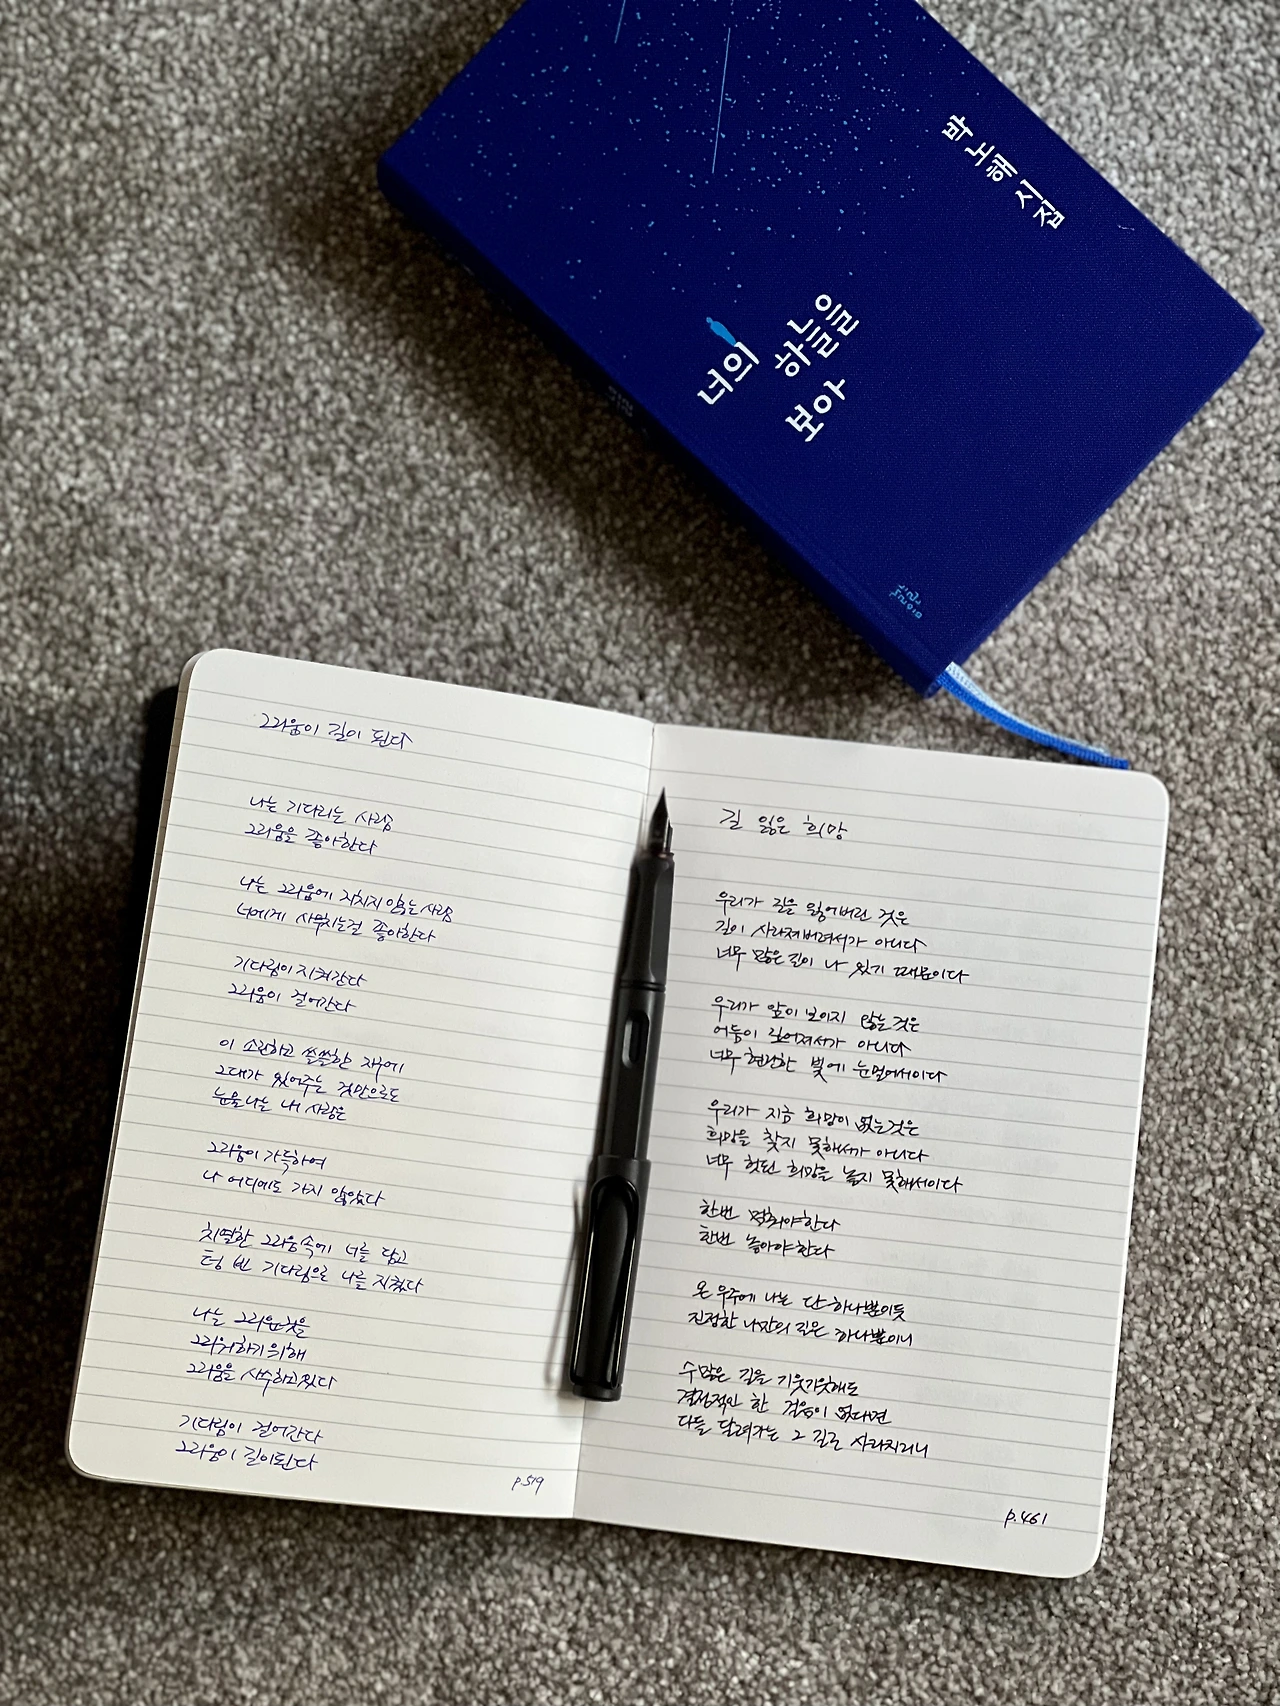 박노해 시집
너의
하늘을
보아
그리움이 길이 된다
나는 기다리는 사람
그리움을 좋아한다
나는 그리움에 지치지 않는 사람
너에게 사무치는걸 좋아한다
기다림이 지켜간다
그리움이 걸어간다
이 소란하고 쓸쓸한 지구에
그대가 있어주는 것만으로도
눈물나는 내 사랑은
그리움이 가득하여
나 어디에도 가지 않았다
치열한 그리움속에 너를 담고
텅 빈 기다림으로 나를 지켰다
나는 그리운것을
그리워하기 위해
그리움을 사수하고있다
기다림이 걸어간다
그리움이 길이된다
p.519
길 잃은 희망
우리가 길을 잃어버린 것은
길이 사라져버려서가 아니다
너무 많은 길이 나 있기 때문이다
우리가 앞이 보이지 않는것은
어둠이 깊어져서가 아니다
너무 현란한 빛에 눈멀어서이다
우리가 지금 희망이 없는것은
희망을 찾지 못해서가 아니다
너무 헛된 희망을 놓지 못해서이다
한번 멈춰야한다
한번 놓아야한다
온 우주에 나는 단 하나뿐이듯
진정한 나만의 길은 하나뿐이니
수많은 길을 기웃기웃해도
결정적인 한 걸음이 없다면
다들 달려가는 그 길로 사라지리니
p.461